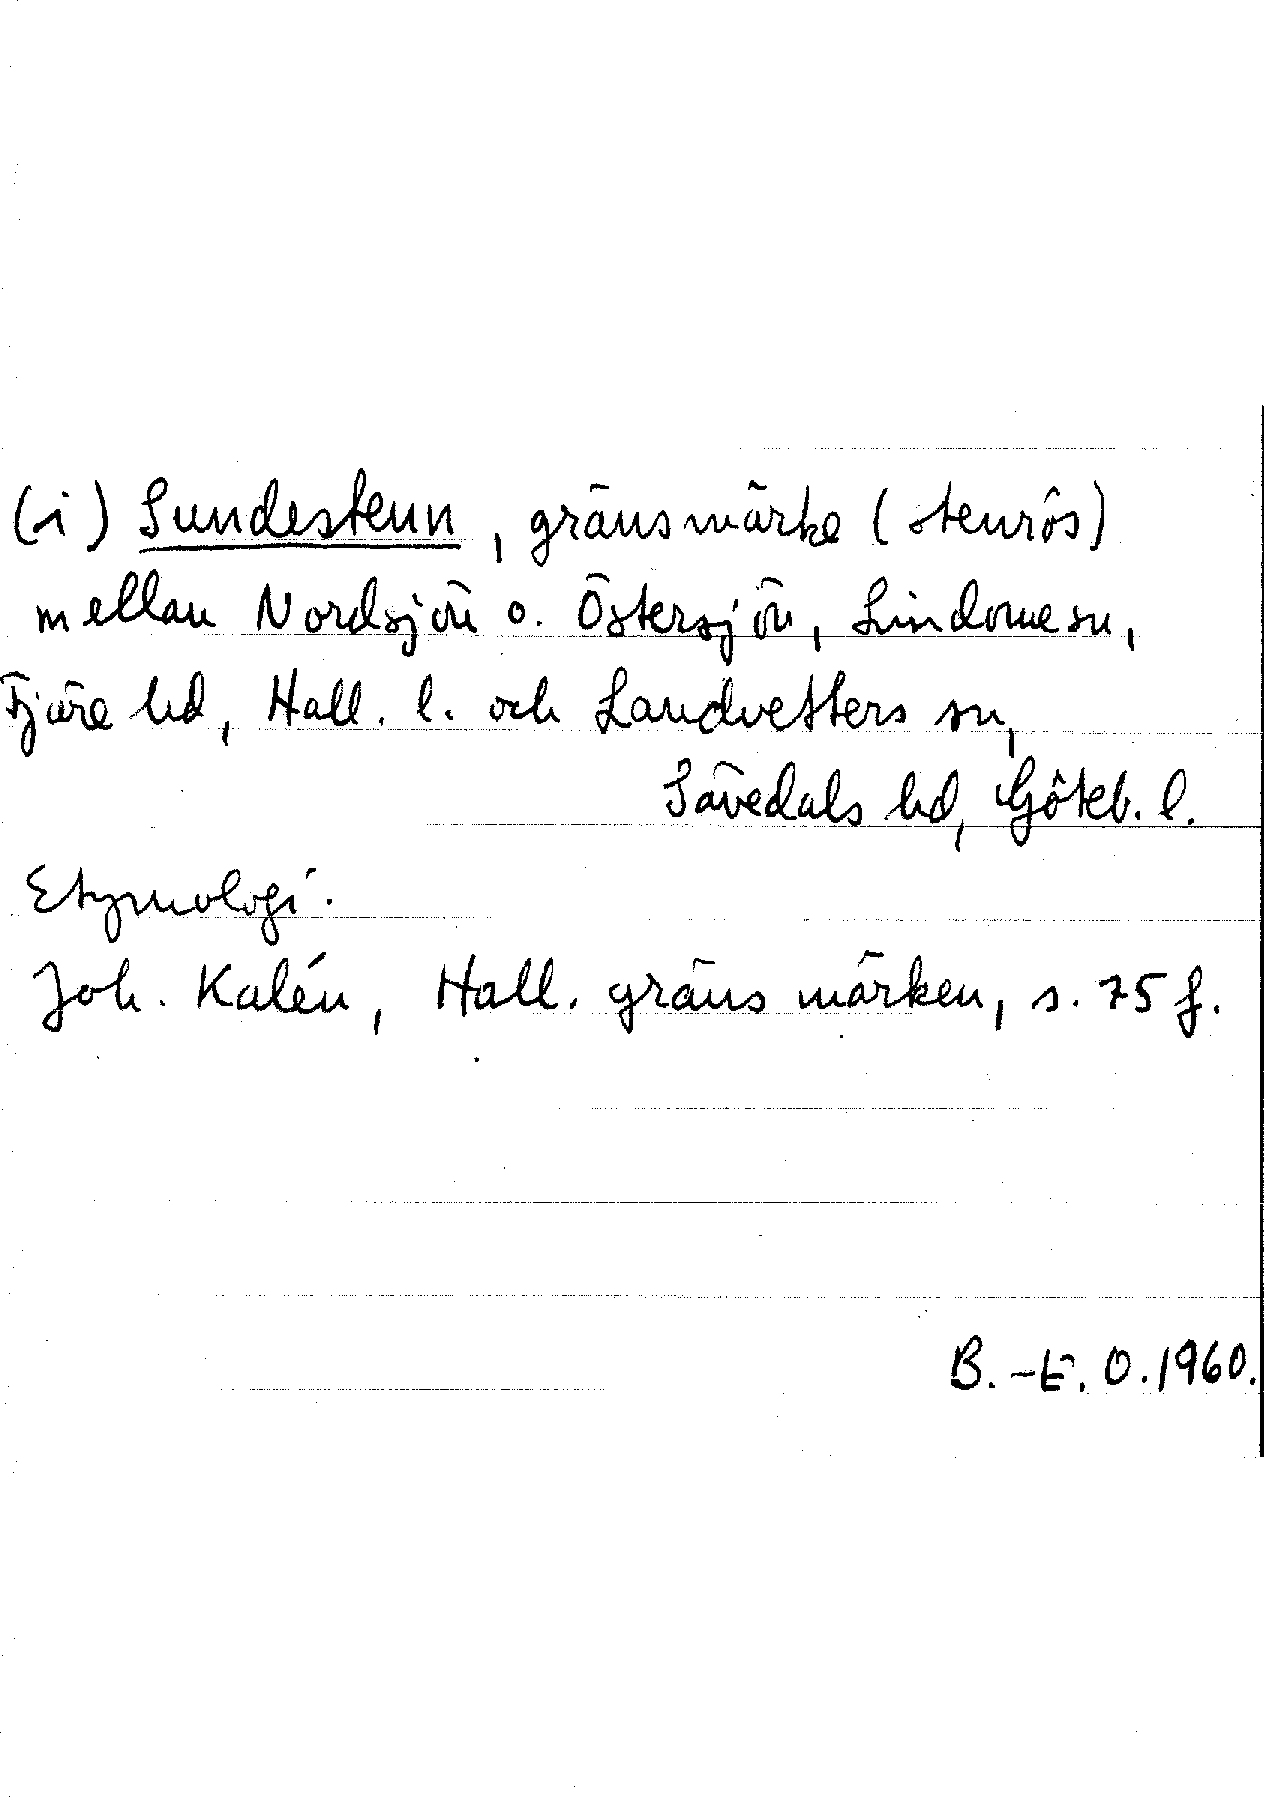 (i) Sundestenn, gränsmärke (stenrös)
mellan Nordsjön o. Östersjön, Lindome sn,
Fjäre hd, Hall. l. och Landvetters sn,
Sävedals hd, Göteb. l.
Etymologi.
Joh. Kalén, Hall. gränsmärken, s. 75 f.
B.-E. O. 1960.